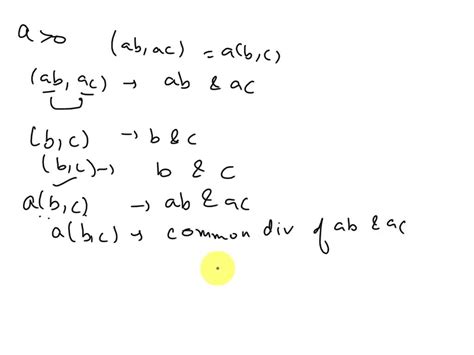 a>0 (ab, ac) = a(b,c)
(ab, ac) → ab & ac
(b,c) → b & c
(b,c) → b & c
a(b,c) → ab & ac
a(b,c) → common div of ab & ac